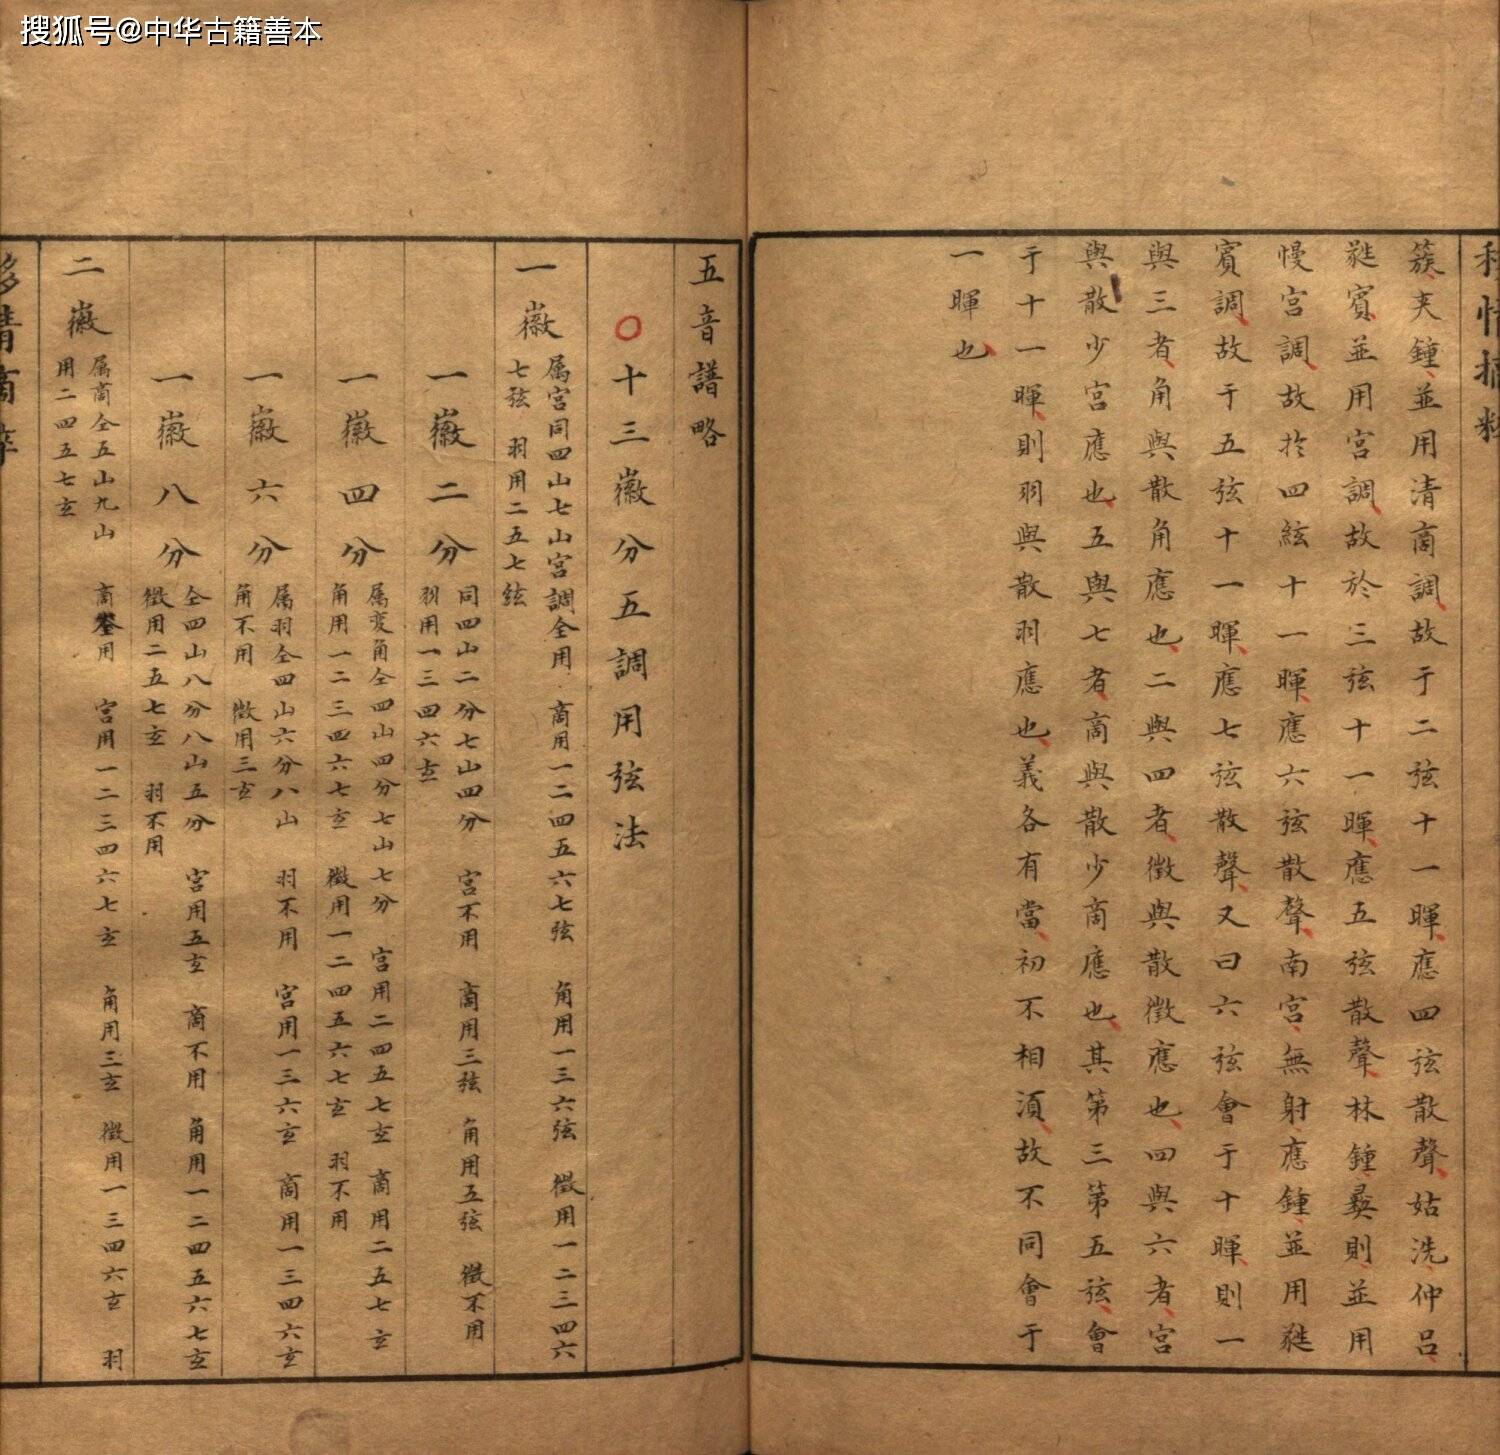 搜狐号@中华古籍善本
簇夾鍾並用清商調故于二弦十一暉應四弦散聲姑洗仲呂
蕤賓並用宮調故於三弦十一暉應五弦散聲林鍾彞則並用
慢宮調故扵四絃十一暉應六弦散聲南宮無射應鍾並用蕤
賓調故于五弦十一暉應七弦散聲又曰六弦會于十暉則一
與三者角與散角應也二與四者徵與散徵應也四與六者宮
與散少宮應也五與七者商與散少商應也其第三第五弦會
于十一暉則羽與散羽應也義各有當初不相湏故不同會于
一暉也
五音譜略
〇十三徽分五調用弦法
一徽
属宮同四山七山宮調仝用 商用一二四五六七弦 角用一三六弦 徵用一二三四六
七弦 羽用二五七弦
一徽二分
同四山二分七山四分 宮不用 商用三弦 角用五弦 徵不用
羽用一三四六玄
一徽四分
属变角仝四山四分七山七分 宮用二四五七玄 商用二五七玄
角用一二三四六七玄 徵用一二四五六七玄 羽不用
一徽六分
属羽仝四山六分八山 羽不用 宮用一三六玄 商用一三四六玄
角不用 徵用三玄
一徽八分
仝四山八分八山五分 宮用五玄 商不用 角用一二四五六七玄
徵用二五七玄 羽不用
二徽
属商仝五山九山 商叁用 宮用一二三四六七玄 角用三玄 徵用一三四六玄 羽
用二四五七玄